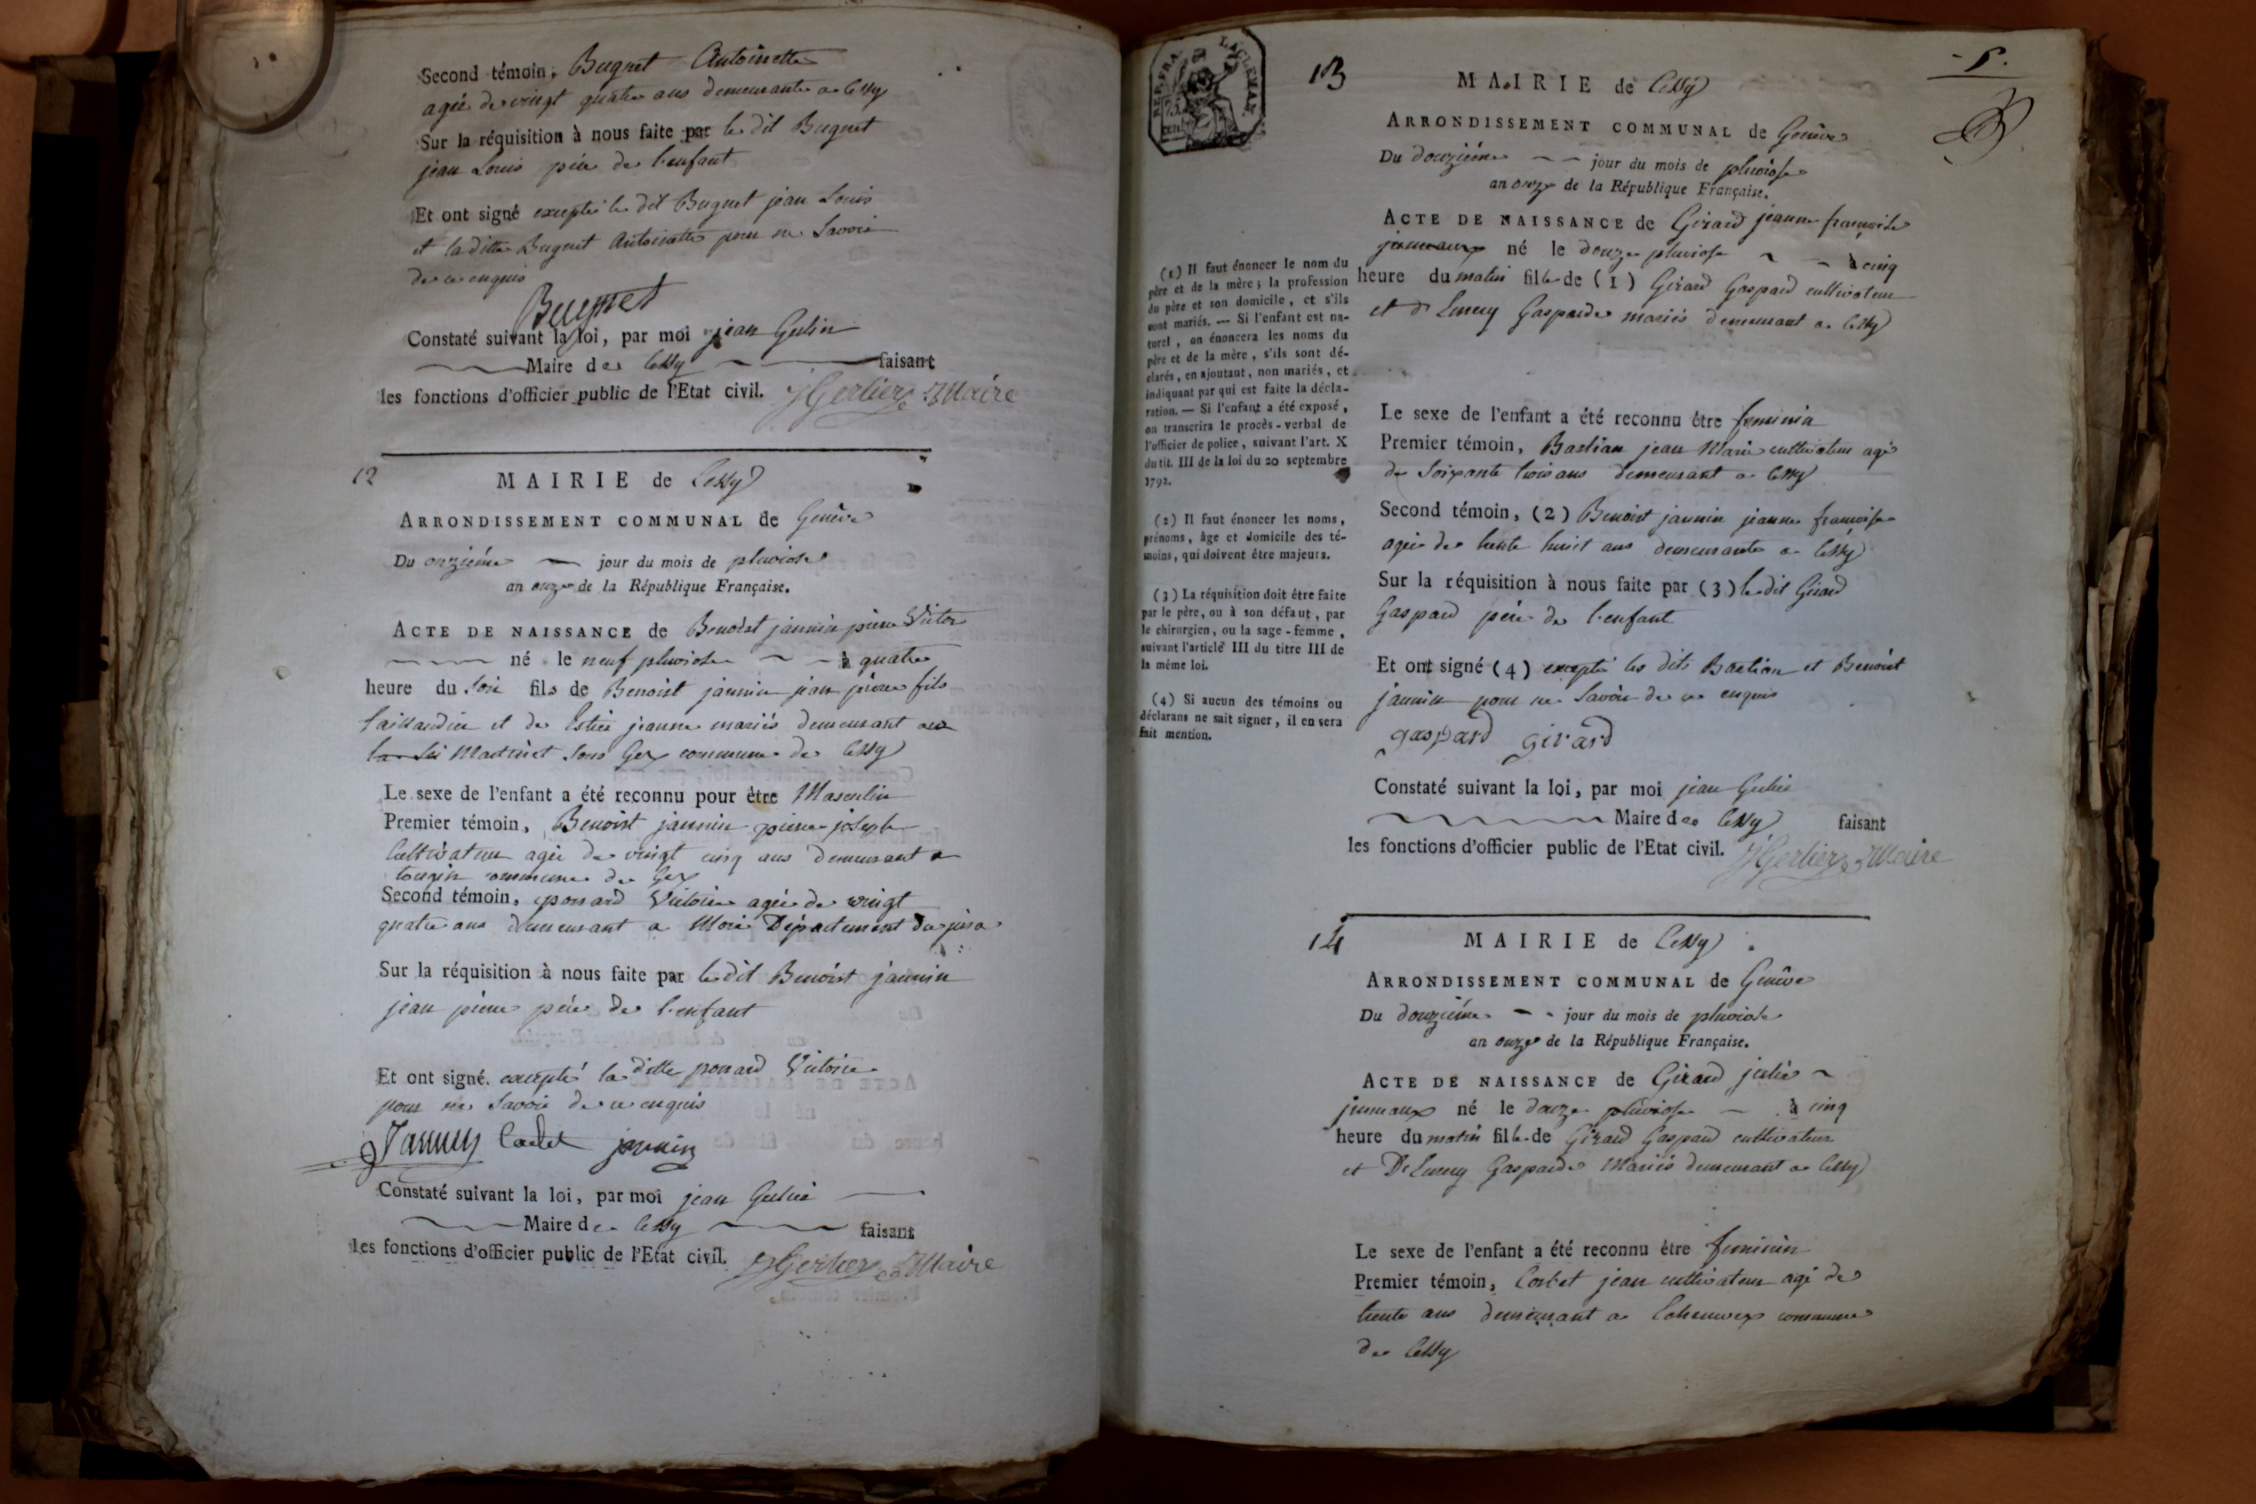 Second témoin, Bugnet Antoinette
agée de vingt quatre ans demeurante a Cessy
Sur la réquisition à nous faite par le dit Bugnet
jean Louis père de l'enfant
Et ont signé excepté le dit Bugnet jean Louis
et la ditte Bugnet Antoinette pour ne Savoir
de ce enquis
Bugnet
Constaté suivant la loi, par moi jean
Maire de Cessy faisant
les fonctions d'officier public de l'Etat civil. Maire
12
MAIRIE de Cessy
ARRONDISSEMENT COMMUNAL de Genève
Du onzième jour du mois de pluviose
an onze de la République Française.
ACTE DE NAISSANCE de Benoist jannin pierre Victor
né le neuf pluviose à quatre
heure du Soir fils de Benoist jannin jean pierre fils
taillandier et de jeanne mariés demeurant au
Martinet Sous Gex commune de Cessy
Le sexe de l'enfant a été reconnu pour être Masculin
Premier témoin, Benoist jannin pierre joseph
Cultivateur agée de vingt cinq ans demeurant a
tougin commune de Gex
Second témoin, ponsard Victoire agée de vingt
quatre ans demeurant a Département du jura
Sur la réquisition à nous faite par le dit Benoist jannin
jean pierre père de l'enfant
Et ont signé. excepté la ditte ponsard Victoire
pour ne Savoir de ce enquis
Jannin Cadet jannin
Constaté suivant la loi, par moi jean
Maire de Cessy faisant
les fonctions d'officier public de l'Etat civil. Maire
REP. FRA.
13
MAIRIE de Cessy
ARRONDISSEMENT COMMUNAL de Genève
Du douzième jour du mois de pluviose
an onze de la République Française.
ACTE DE NAISSANCE de Girard jeanne françoise
jumeaux né le douze pluviose à cinq
heure du matin fille de (1) Girard Gaspard cultivateur
et Gasparde mariés demeurant a Cessy
(1) Il faut énoncer le nom du
père et de la mère; la profession
du père et son domicile, et s'ils
sont mariés. — Si l'enfant est na-
turel, on énoncera les noms du
père et de la mère, s'ils sont dé-
clarés, en ajoutant, non mariés, et
indiquant par qui est faite la décla-
ration. — Si l'enfant a été exposé,
on transcrira le procès-verbal de
l'officier de police, suivant l'art. X
du tit. III de la loi du 20 septembre
1792.
(2) Il faut énoncer les noms,
prénoms, âge et domicile des té-
moins, qui doivent être majeurs.
(3) La réquisition doit être faite
par le père, ou à son défaut, par
le chirurgien, ou la sage-femme,
suivant l'article III du titre III de
la même loi.
(4) Si aucun des témoins ou
déclarans ne sait signer, il en sera
fait mention.
Le sexe de l'enfant a été reconnu être feminin
Premier témoin, Bastian jean Marie cultivateur agé
de Soixante trois ans demeurant a Cessy
Second témoin, (2) Benoist jannin jeanne françoise
agée de trente huict ans demeurante a Cessy
Sur la réquisition à nous faite par (3) le dit Girard
Gaspard père de l'enfant
Et ont signé (4) excepté les dits Bastian et Benoist
jannin pour ne Savoir de ce enquis
gaspard girard
Constaté suivant la loi, par moi jean
Maire de Cessy faisant
les fonctions d'officier public de l'Etat civil. Maire
14
MAIRIE de Cessy
ARRONDISSEMENT COMMUNAL de Genève
Du douzième jour du mois de pluviose
an onze de la République Française.
ACTE DE NAISSANCE de Girard julie
jumeaux né le douze pluviose à cinq
heure du matin fille de Girard Gaspard cultivateur
et Gasparde Mariés demeurant a Cessy
Le sexe de l'enfant a été reconnu être feminin
Premier témoin, jean cultivateur agé de
trente ans demeurant a commune
de Cessy